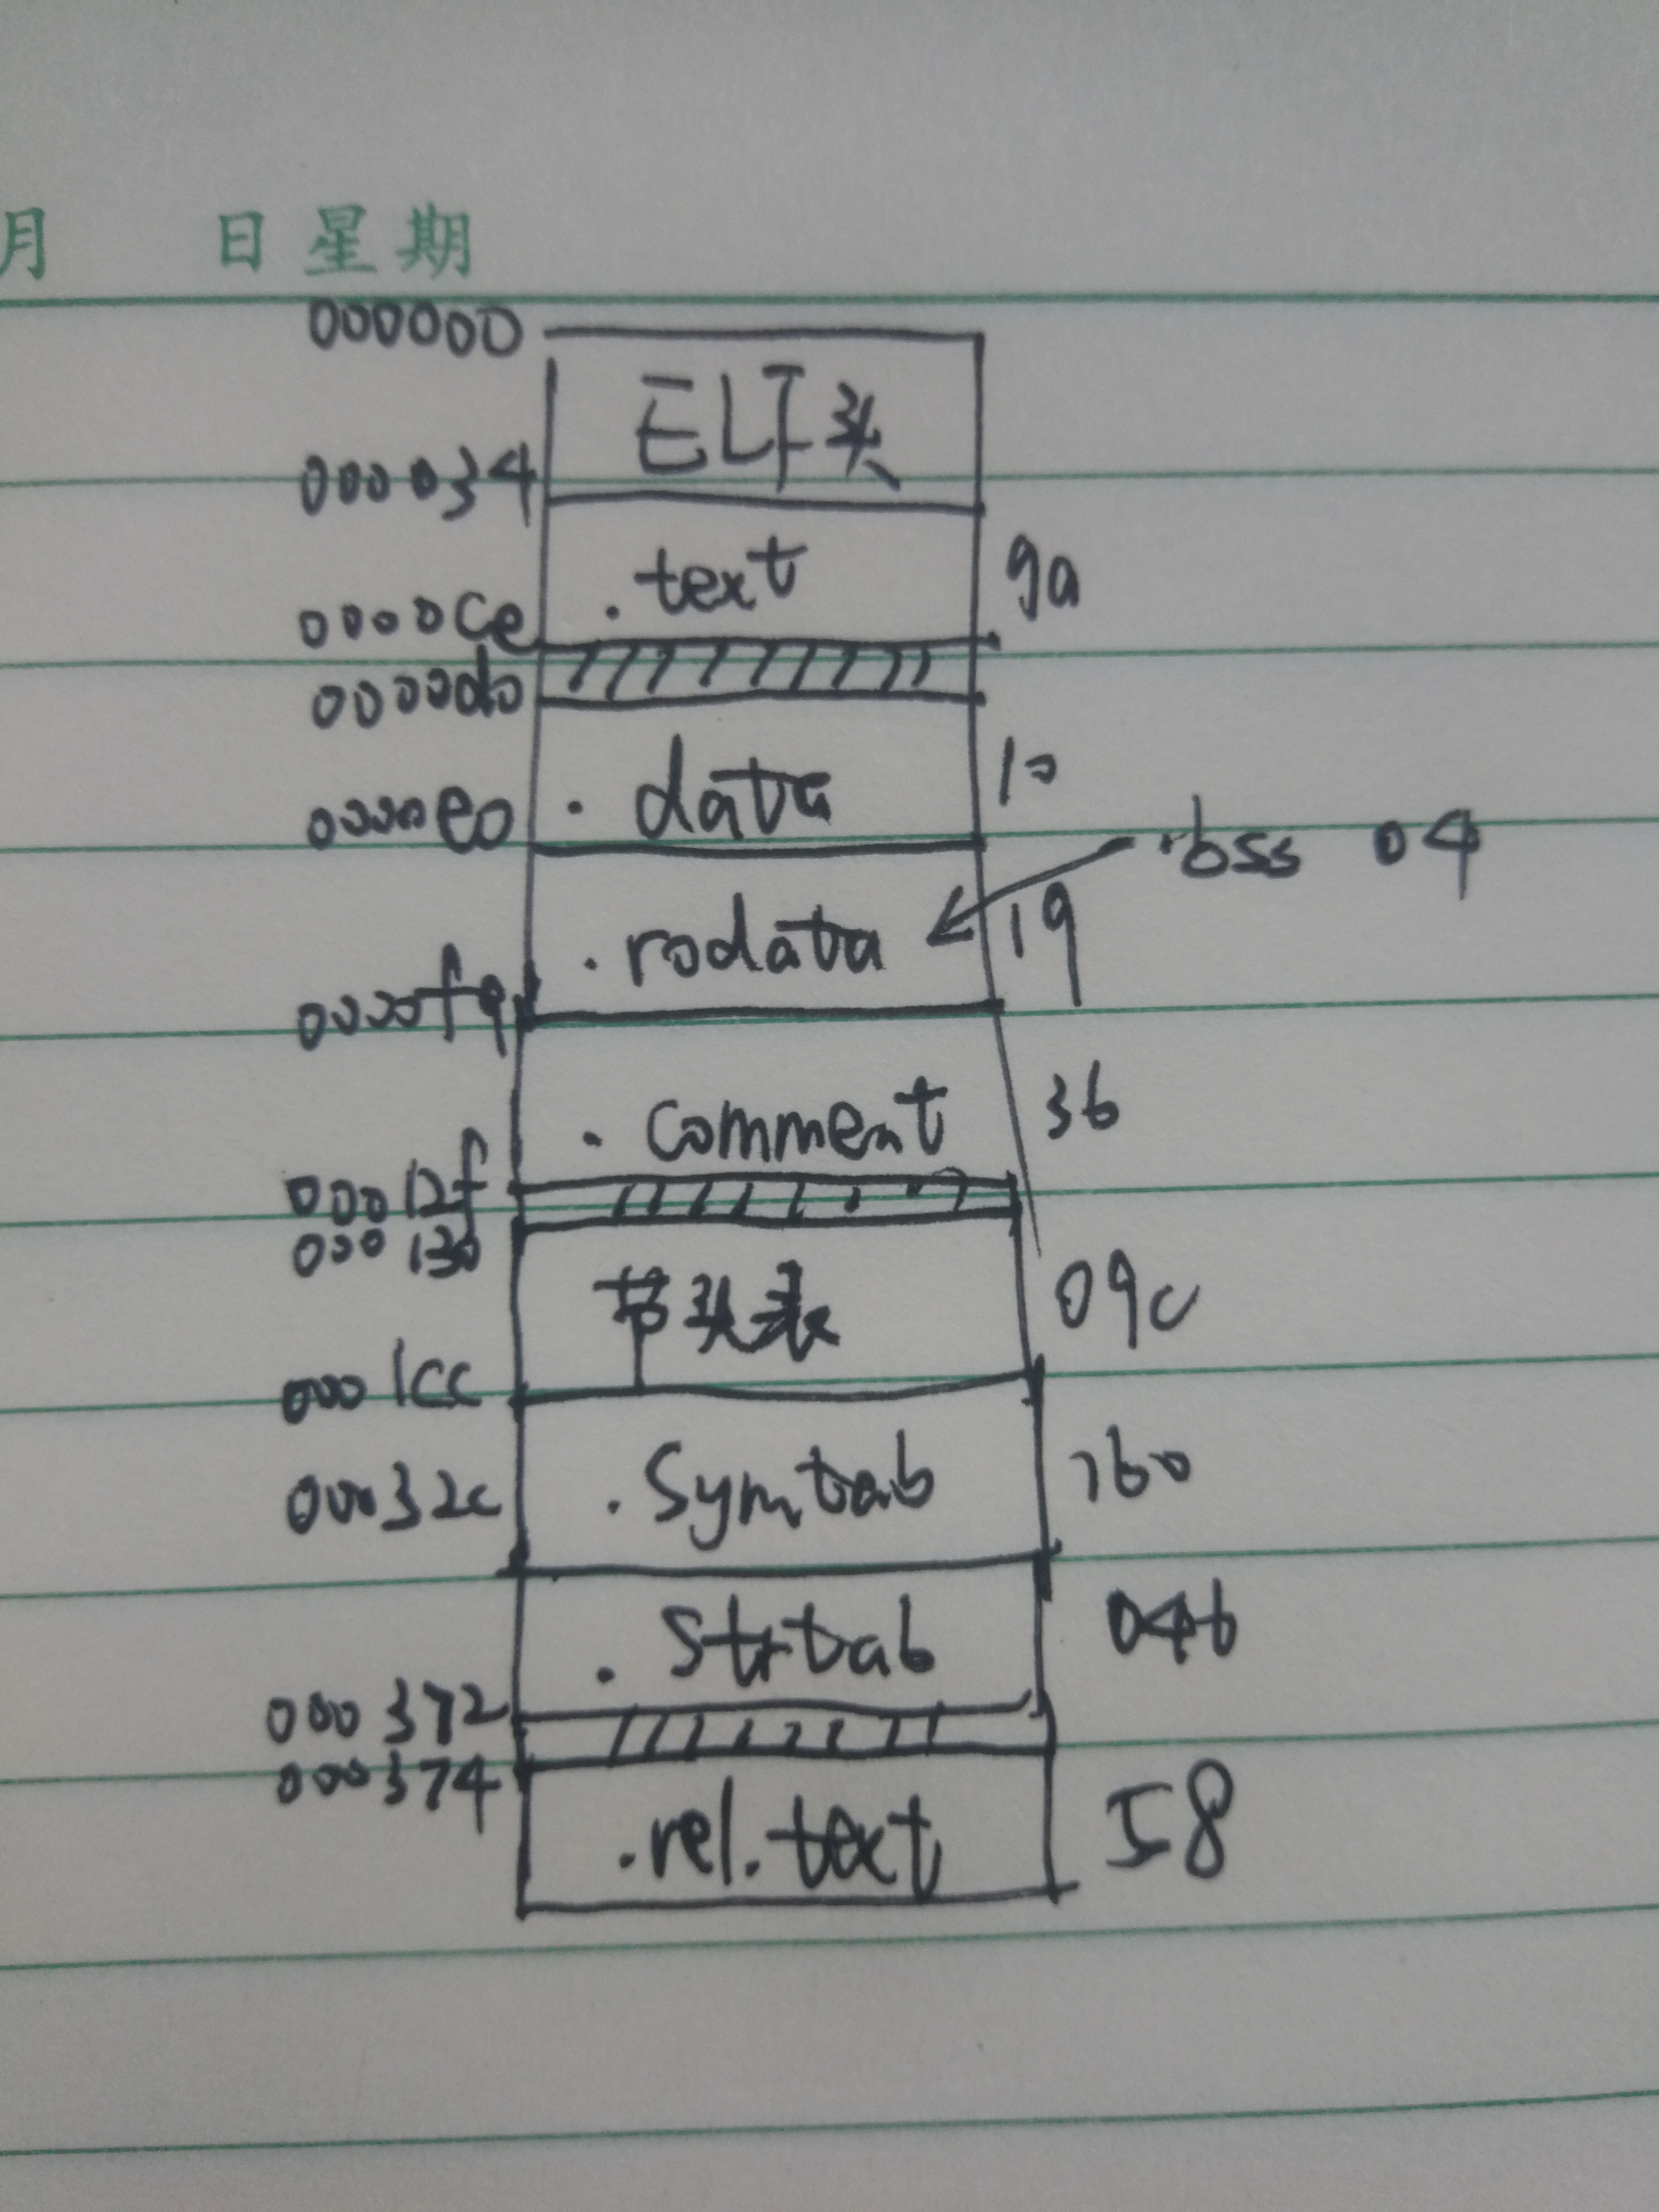 月 日 星期
000000
ELF头
000034
.text 9a
0000ce
0000d0
.data 10
0000e0
.bss 04
.rodata 19
0000f9
.comment 36
00012f
000130
节头表 09c
0001cc
.symtab 160
00032c
.strtab 046
000372
000374
.rel.text 58